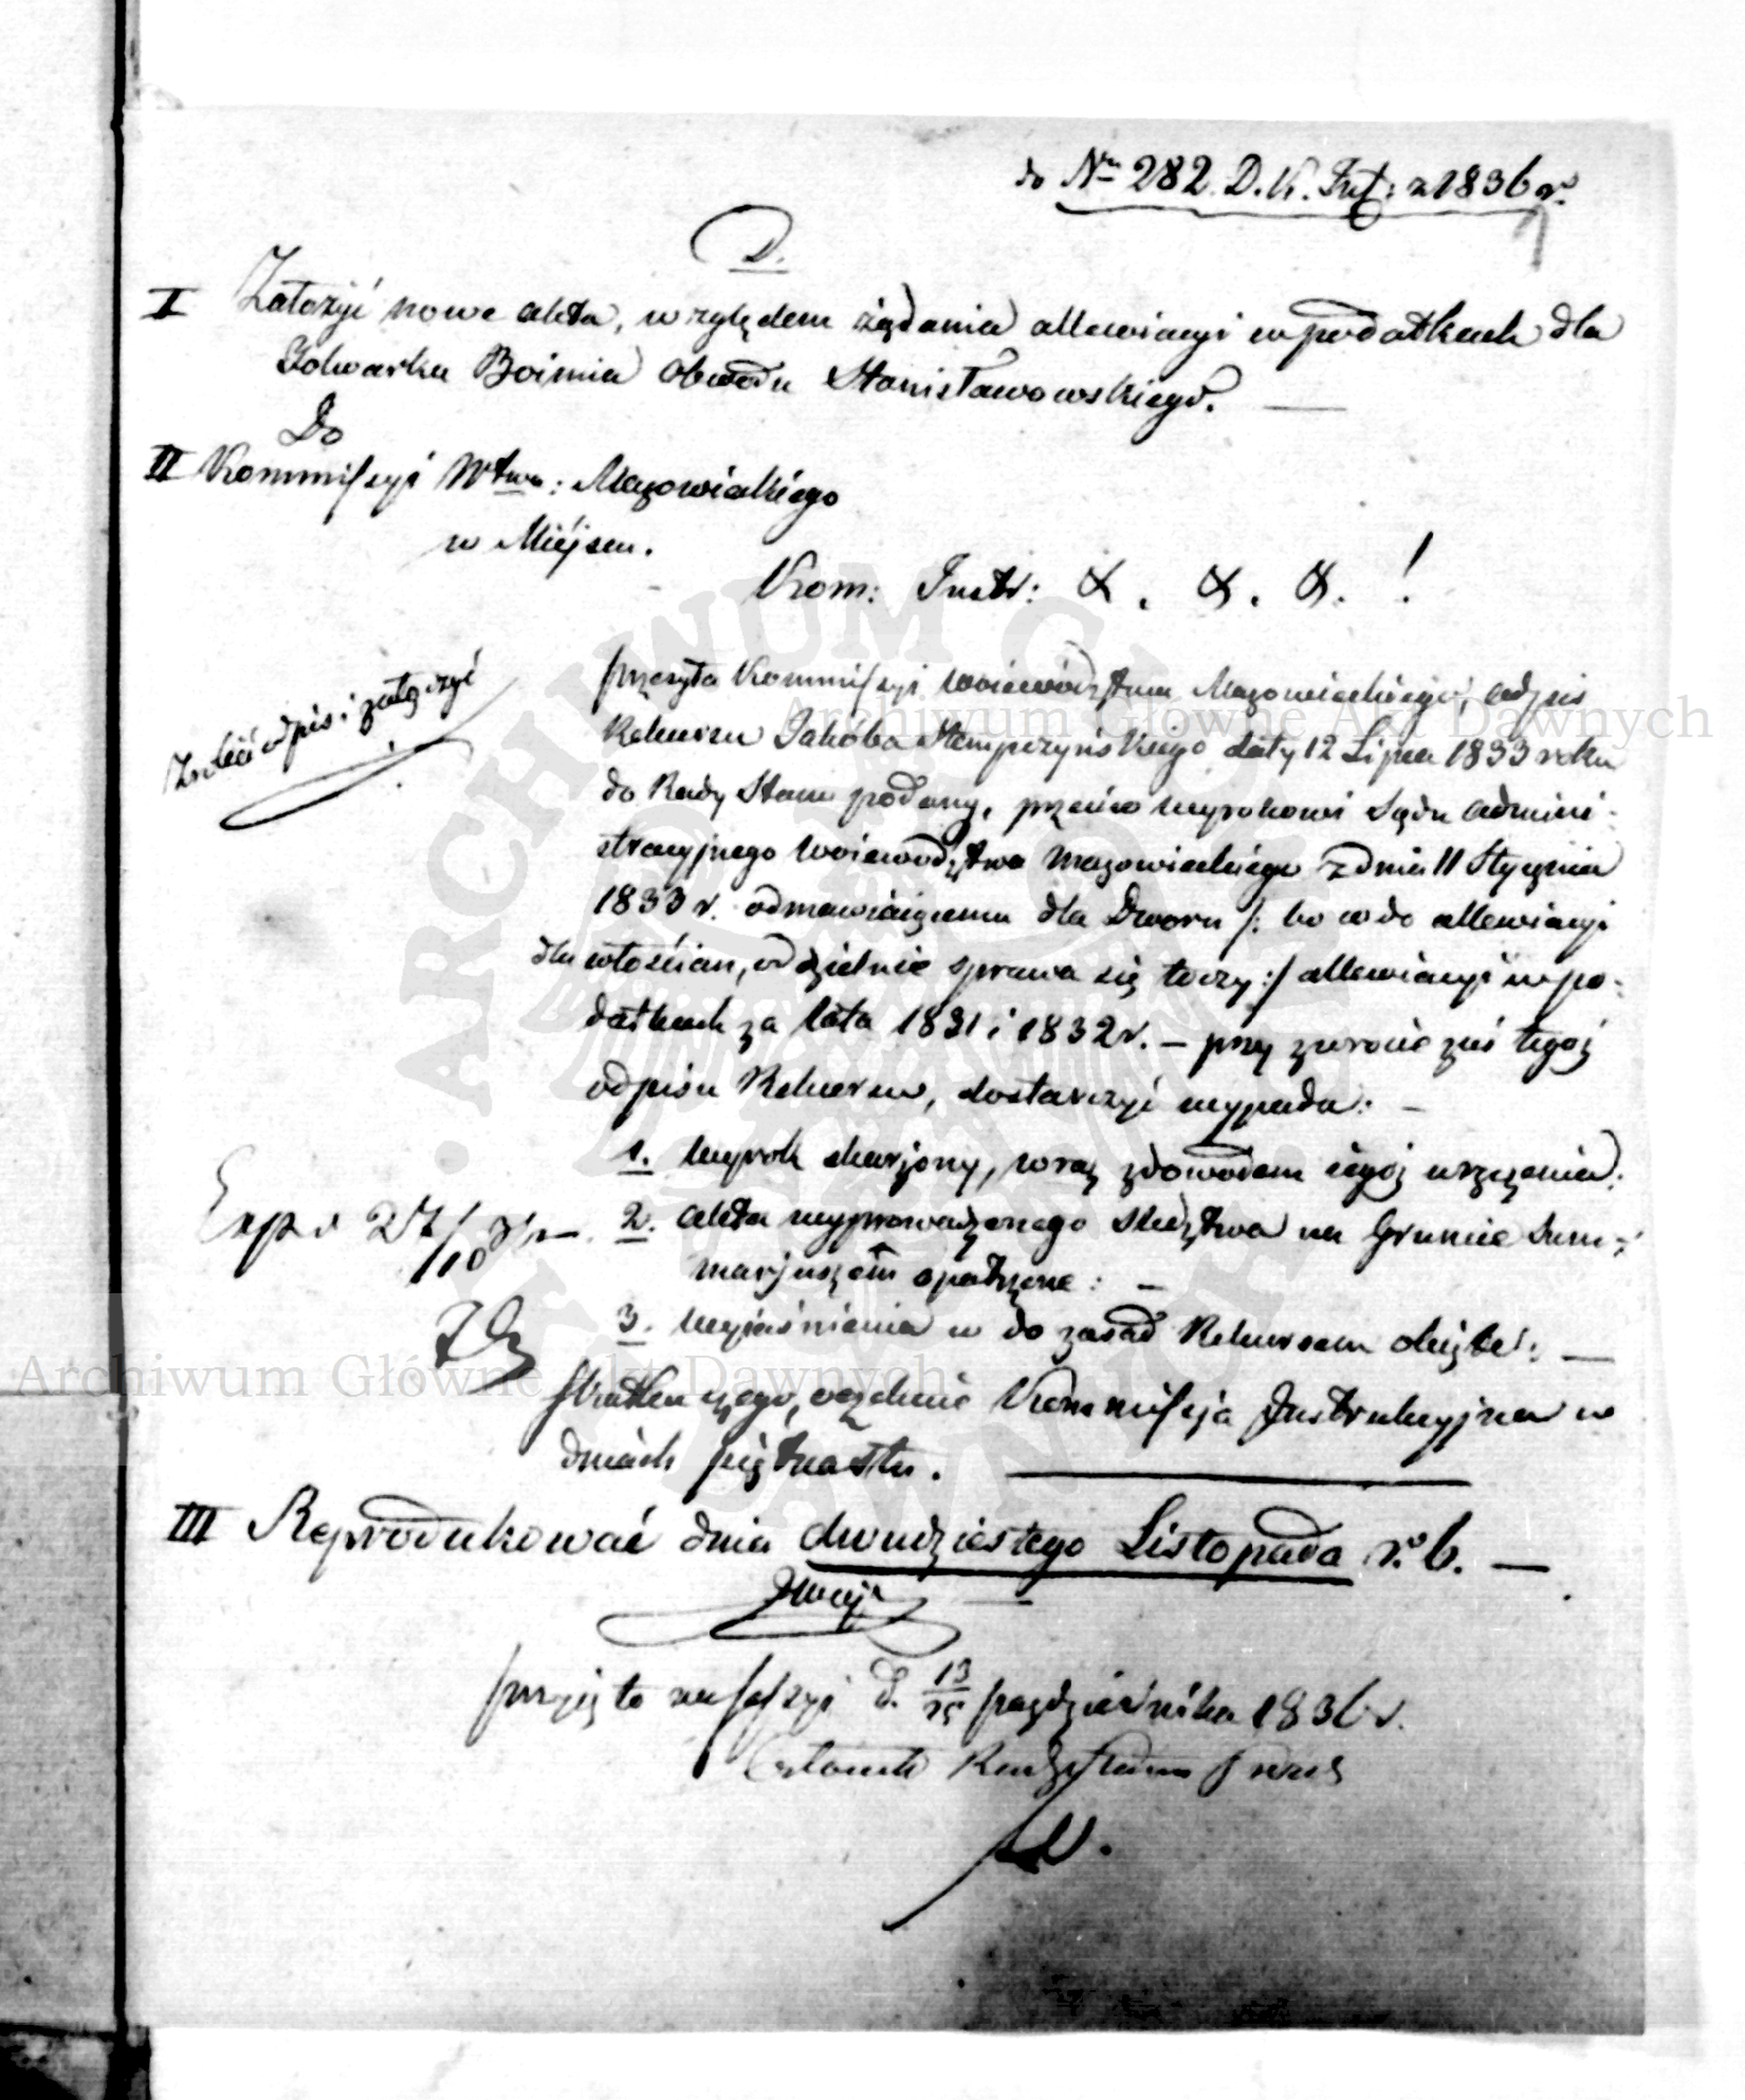 do Nru 282. D. K. Inst: z 1836 r.
D.
I Założyć nowe akta, względem żądania allewiacyi w podatkach dla
Folwarku Boimia Obwodu Stanisławowskiego. —
Do
II Kommissyi Wtwa: Mazowieckiego
w Miejscu.
Kom: Instr: &. &. &. !
Zrobić odpis i załączyć
przesyła Kommissyi Woiewództwa Mazowieckiego, odpis
Rekursu Jakóba Stempczyńskiego daty 12 Lipca 1833 roku
do Rady Stanu podany, przeciw wyrokowi Sądu Admini-
stracyjnego Woiewództwa Mazowieckiego z dnia 11 Stycznia
1833 r. odmawiaiącemu dla Dworu /: bo co do allewiacyi
dla włościan, oddzielnie sprawa się toczy :/ allewiacyi w po-
datkach za lata 1831 i 1832 r. — przy zwrocie zaś tegoż
odpisu Rekursu, dostarczyć wypada: —
1. Wyrok skarżony, wraz z dowodem iegoż wręczenia:
Exp. 27/10
2. Akta wyprowadzonego śledztwa na Gruncie Sum-
marjuszem opatrzone: —
3. Wyjaśnienia co do zasad Rekursem objęte: —
Skutku czego, oczekuie Kommissyja Instrukcyjna w
dniach piętnastu.
III Reprodukować dnia dwudziestego Listopada r. b. —
przyjęto na sessyi d. 13/25 października 1836 r.
Członek Rady Stanu Prezes